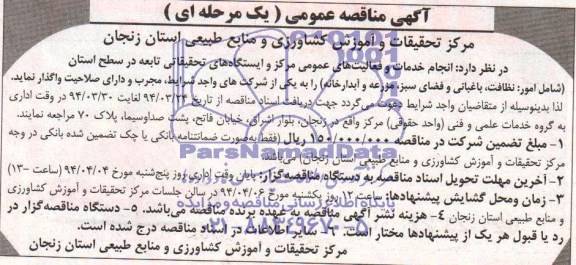 آگهی مناقصه عمومی ( یک مرحله ای )
مرکز تحقیقات و آموزش کشاورزی و منابع طبیعی استان زنجان
در نظر دارد: انجام خدمات و فعالیت‌های عمومی مرکز و ایستگاه‌های تحقیقاتی تابعه در سطح استان
(شامل امور: نظافت، باغبانی و فضای سبز، مزرعه و ابدارخانه) را به یکی از شرکت های واجد شرایط، مجرب و دارای صلاحیت واگذار نماید.
لذا بدینوسیله از متقاضیان واجد شرایط دعوت می‌گردد جهت دریافت اسناد مناقصه از تاریخ ۹۴/۰۳/۲۳ لغایت ۹۴/۰۳/۳۰ در وقت اداری
به گروه خدمات علمی و فنی (واحد حقوقی) مرکز واقع در زنجان، بلوار اشراق، خیابان فاتح، پشت صداوسیما، پلاک ۷۰ مراجعه نمایند.
۱- مبلغ تضمین شرکت در مناقصه ۱۵۰/۰۰۰/۰۰۰ ریال (فقط به صورت ضمانتنامه بانکی یا چک تضمین شده بانکی در وجه
مرکز تحقیقات و آموزش کشاورزی و منابع طبیعی استان زنجان) می‌باشد
۲- آخرین مهلت تحویل اسناد مناقصه به دستگاه مناقصه‌گزار: پایان وقت اداری روز پنج‌شنبه مورخ ۹۴/۰۴/۰۴ (ساعت ۱۳)
۳- زمان ومحل گشایش پیشنهادها: ساعت ۱۰ روز یکشنبه مورخ ۹۴/۰۴/۰۶ در سالن جلسات مرکز تحقیقات و آموزش کشاورزی
و منابع طبیعی استان زنجان ۴- هزینه نشر آگهی مناقصه به عهده برنده مناقصه می‌باشد. ۵- دستگاه مناقصه‌گزار در
رد یا قبول هر یک از پیشنهادها مختار است. ۶- سایر اطلاعات در اسناد مناقصه درج شده است.
مرکز تحقیقات و آموزش کشاورزی و منابع طبیعی استان زنجان
ParsNamadData
پایگاه اطلاع رسانی مناقصه و مزایده